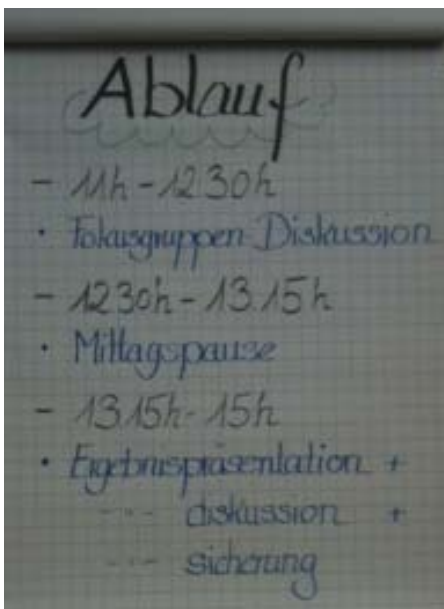 Ablauf
- 11h - 12 30h
• Fokusgruppen-Diskussion
- 12 30h - 13.15h
• Mittagspause
- 13.15h - 15h
• Ergebnispräsentation +
-"- diskussion +
-"- sicherung